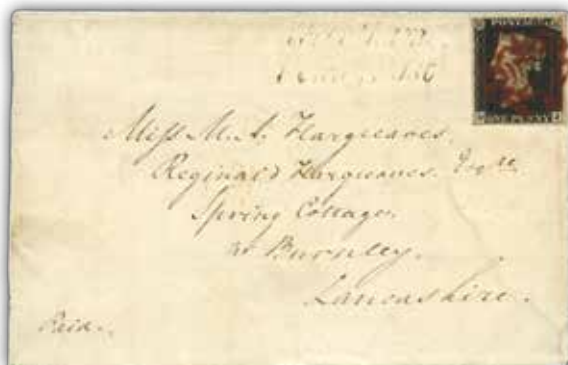 POSTAGE
ONE PENNY
Miss M. A. Hargreaves.
Reginald Hargreaves. Esqre
Spring Cottage.
nr Burnley.
Lancashire.
Paid.